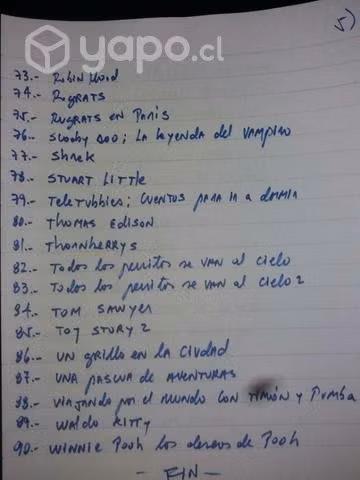 yapo.cl
5)
73.- Robin Hood
74.- Rugrats
75.- Rugrats en Paris
76.- Scooby Doo; La leyenda del vampiro
77.- Shrek
78.- Stuart Little
79.- Teletubbies; Cuentos para ir a dormir
80.- Thomas Edison
81.- Thornherrys
82.- Todos los perritos se van al cielo
83.- Todos los perritos se van al cielo 2
84.- Tom Sawyer
85.- Toy Story 2
86.- Un grillo en la ciudad
87.- Una pascua de aventuras
88.- Viajando por el mundo con Timón y Pumba
89.- Waldo Kitty
90.- Winnie Pooh los deseos de Pooh
- FIN -